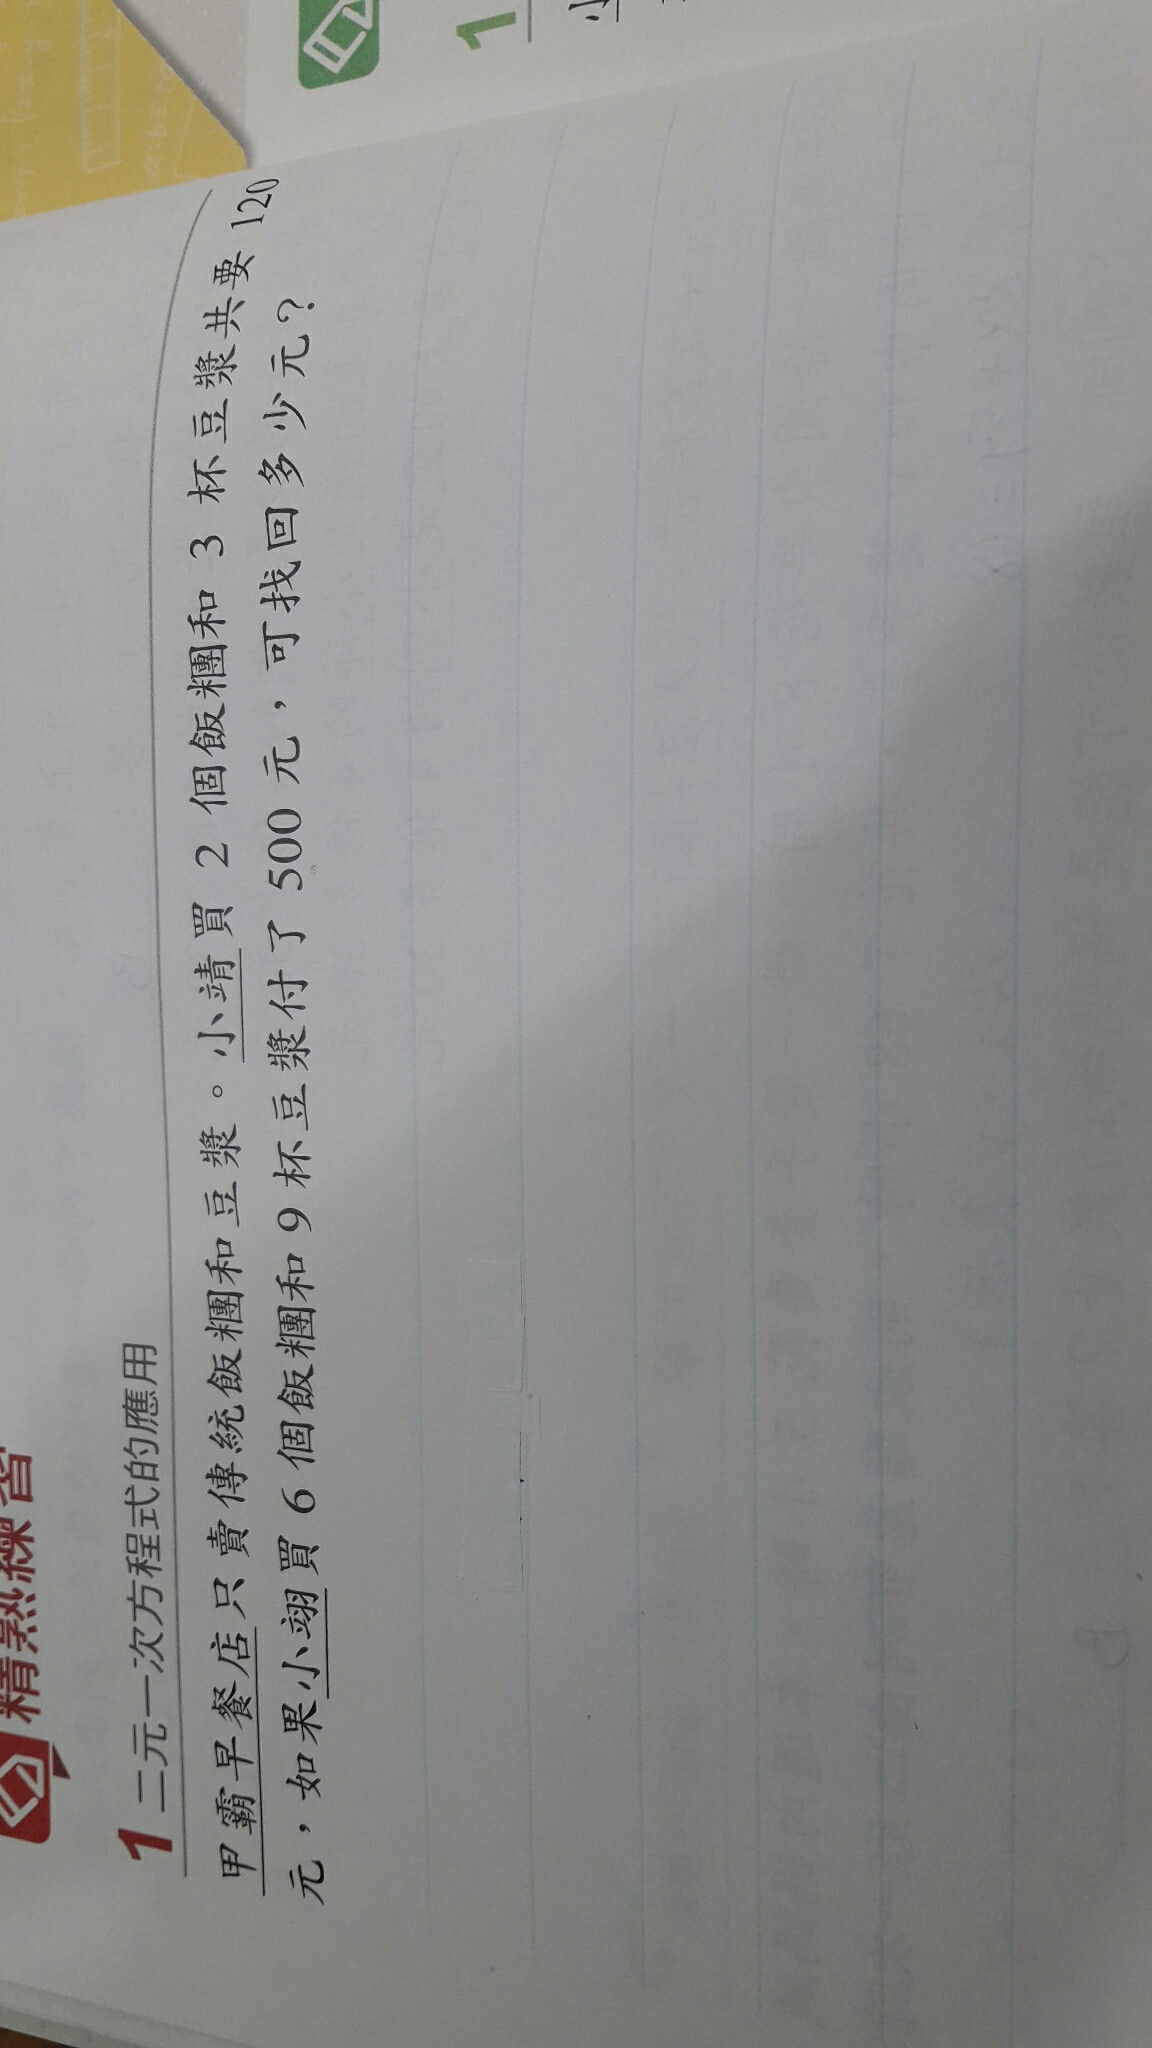 精熟練習
1 二元一次方程式的應用
甲霸早餐店只賣傳統飯糰和豆漿。小靖買 2 個飯糰和 3 杯豆漿共要 120
元，如果小翊買 6 個飯糰和 9 杯豆漿付了 500 元，可找回多少元？
1